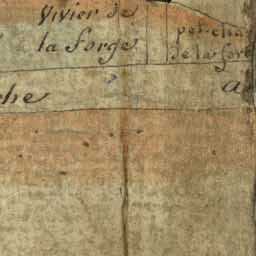 Vivier de
la forge
de la for
che
a